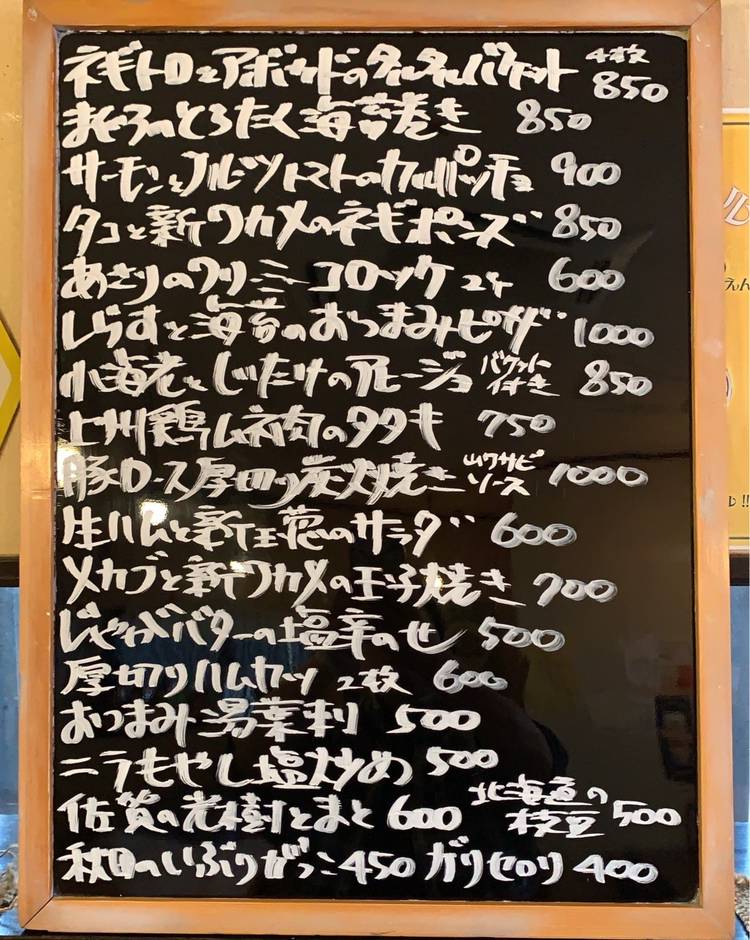 ネギトロとアボカドのタルタルバケット 4枚 850
まぐろのとろたく海苔巻き 850
サーモンとフルーツトマトのカルパッチョ 900
タコと新ワカメのネギポンズ 850
あさりのクリーミーコロッケ 2ケ 600
しらすと海苔のおつまみピザ 1000
小海老としいたけのアヒージョ バケット付き 850
上州鶏ムネ肉のタタキ 750
豚ロース厚切り炭火焼き 山ワサビソース 1000
生ハムと新玉葱のサラダ 600
メカブと新ワカメの玉子焼き 700
じゃがバターの塩辛のせ 500
厚切りハムカツ 2枚 600
おつまみ湯葉刺 500
ニラもやし塩炒め 500
佐賀の光樹とまと 600 北海道の枝豆 500
秋田のいぶりがっこ 450 ガリセロリ 400